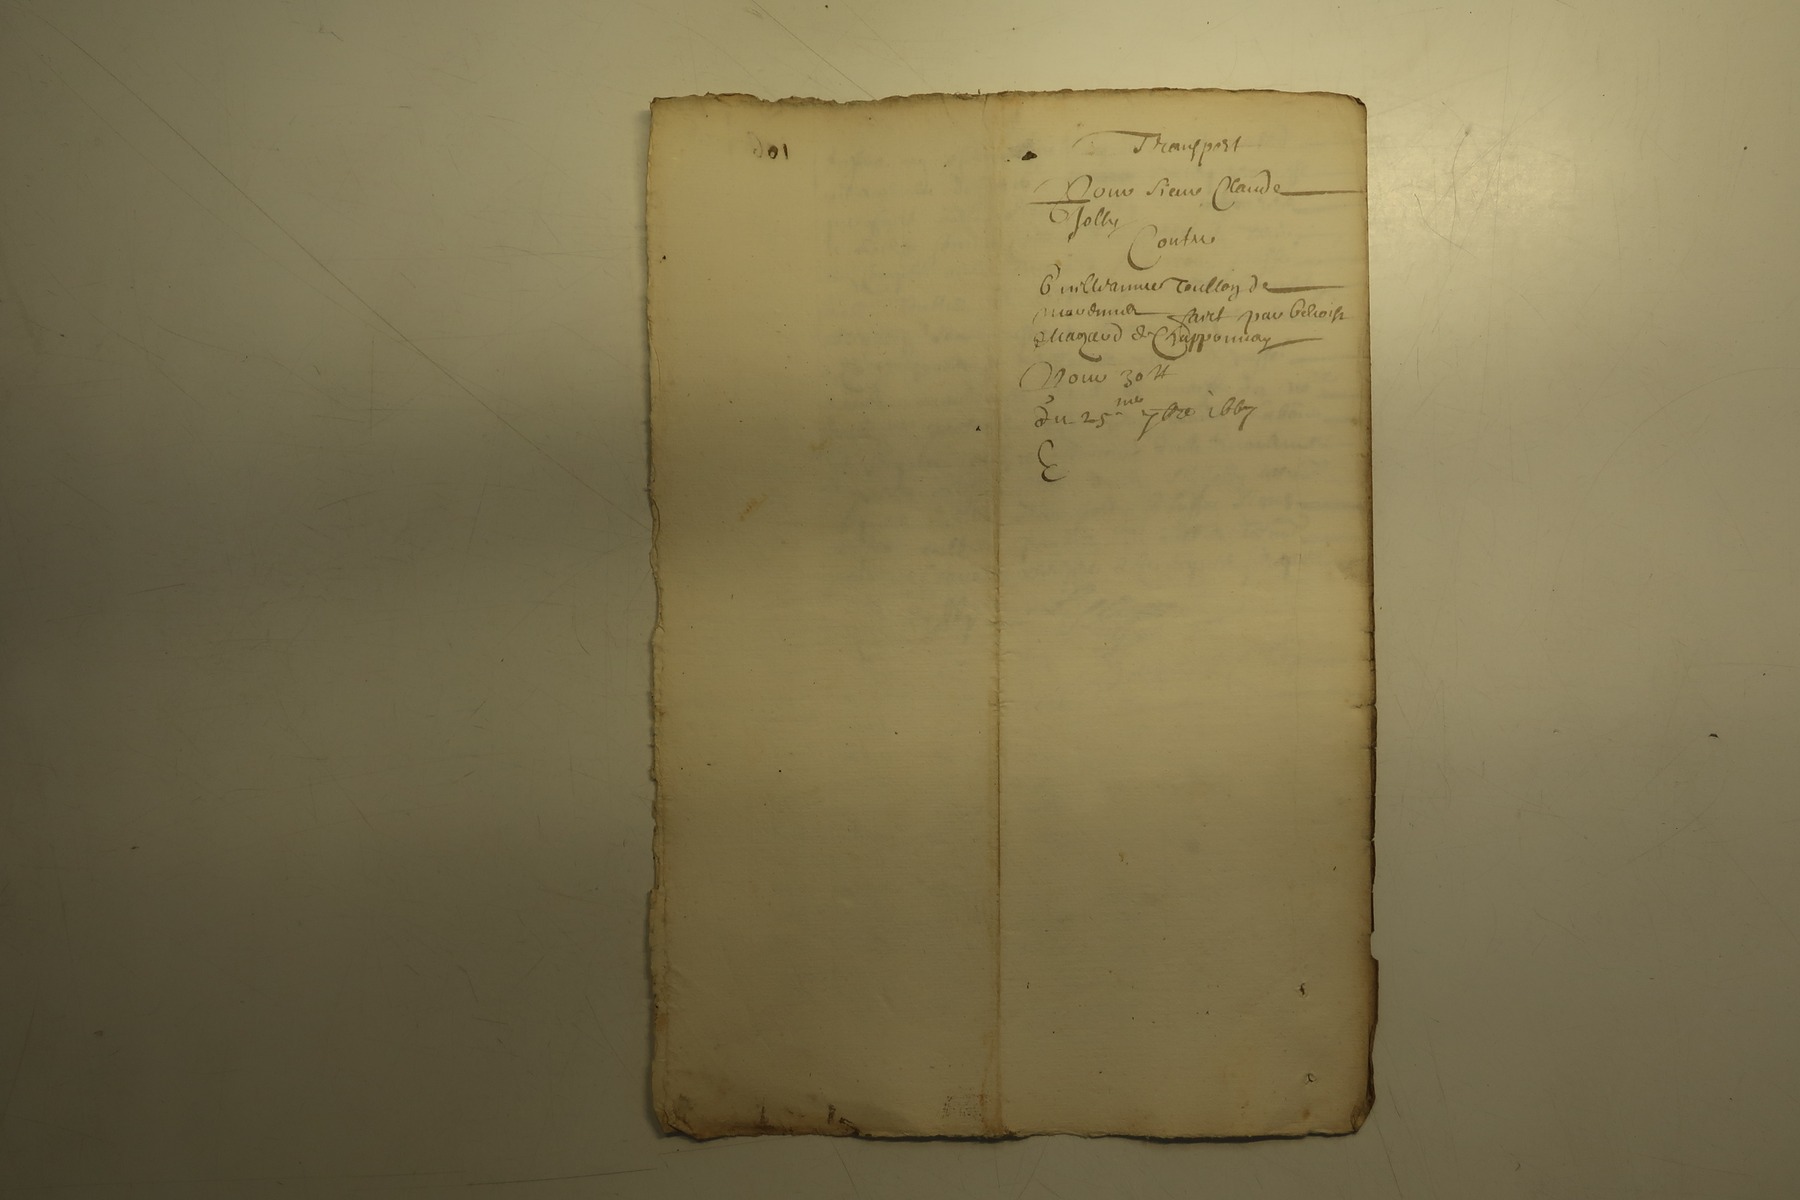 106
Transport
Pour sieur Claude
Jolly
Contre
Guillaume Toullon de
faict par Benoist
de Chapponnay
Pour 30 ₶
du 25me 7bre 1667